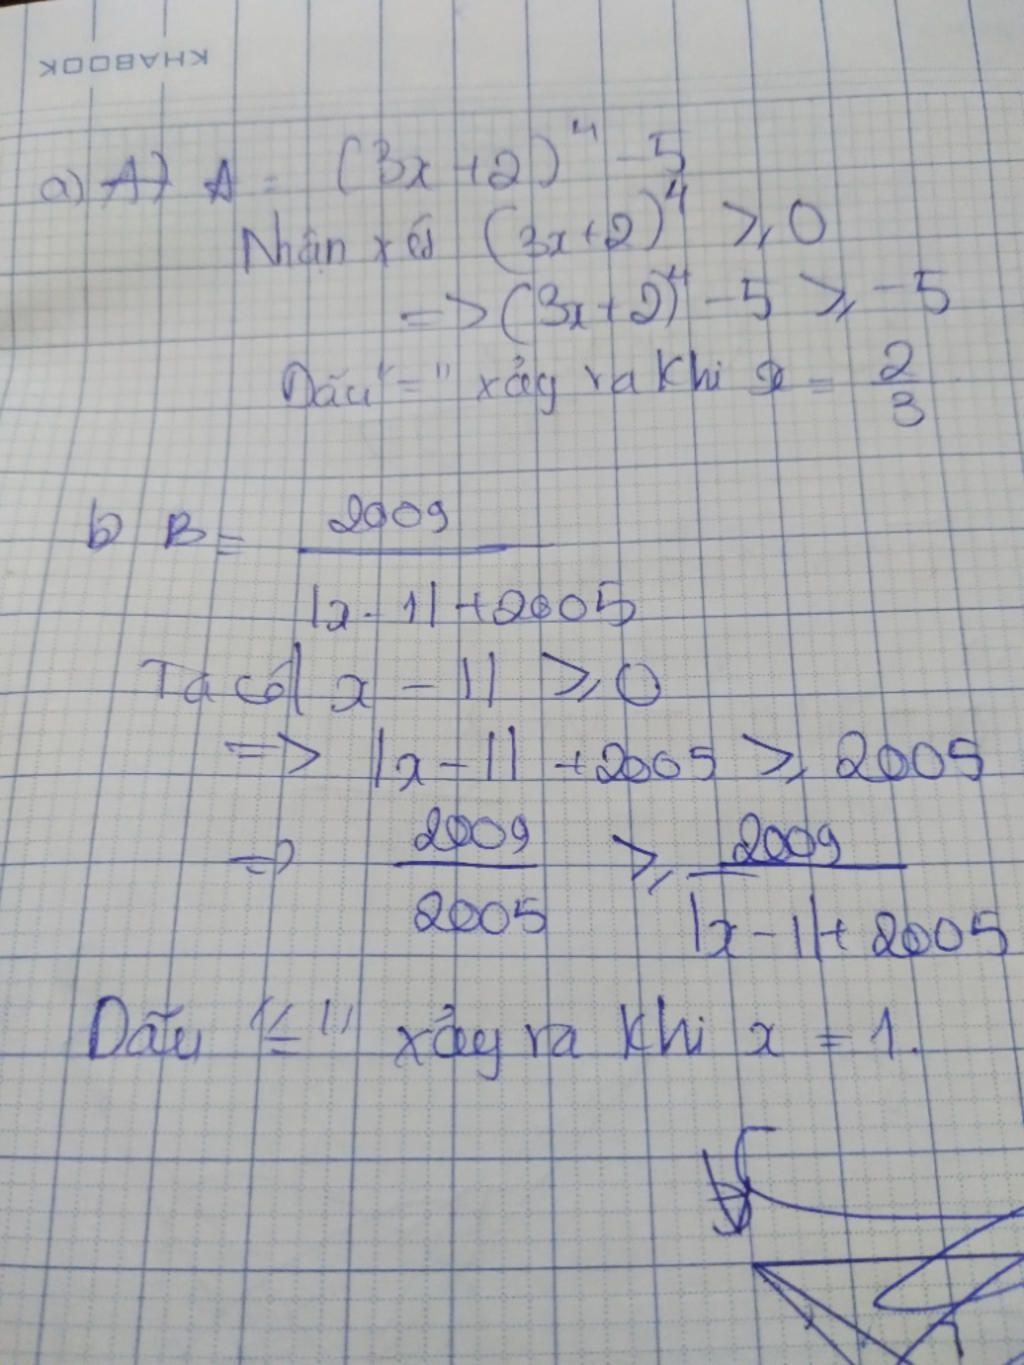 KHABOOK
a) A) A = (3x+2)⁴ -5
Nhận xét (3x+2)⁴ ⩾ 0
=> (3x+2)⁴ -5 ⩾ -5
Dấu "=" xảy ra khi x = 2/3
b B = 2009/(|x-1|+2005)
Ta có |x-1| ⩾ 0
=> |x-1| +2005 ⩾ 2005
=> 2009/2005 ⩾ 2009/(|x-1|+2005)
Dấu "=" xảy ra khi x = 1.